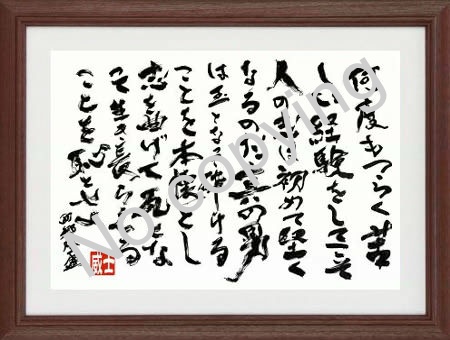 何度もつらく苦
しい経験をしてこそ
人の志は初めて堅く
なるのだ真の男
は玉となって砕ける
ことを本懐とし
志を曲げて瓦とな
って生き長らえる
ことを恥とせよ
西郷隆盛
No copying